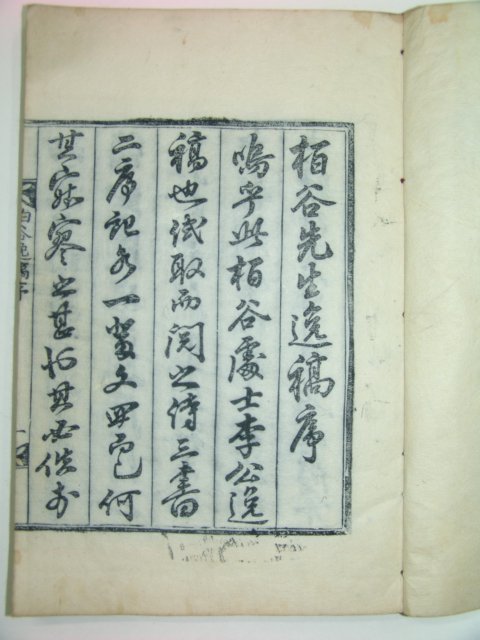 栢谷先生逸稿序
嗚乎此栢谷處士李公逸
稿也試取而閱之詩三書四
二序記各一蓋文止已何
其寂寥之甚也其必佚於
栢谷逸稿序